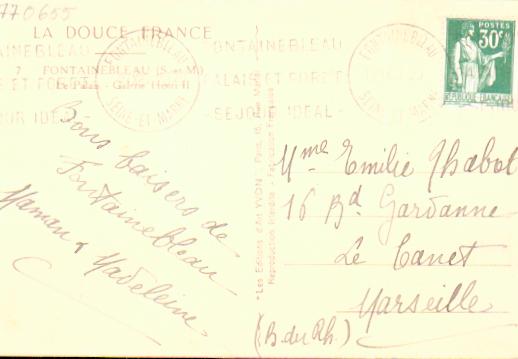 770655
LA DOUCE FRANCE
7 FONTAINEBLEAU (S.-et-M.)
Le Palais - Galerie Henri II
FONTAINEBLEAU
PALAIS ET FORÊT
- SEJOUR IDEAL -
FONTAINEBLEAU
SEINE-ET-MARNE
POSTES
30c
REPUBLIQUE FRANÇAISE
Bons baisers de
Fontainebleau
Maman & Madeleine
"Les Editions d'Art YVON", Paris, 15, Rue Martel
Reproduction Interdite - Fabrication Française
Mme Emilie Chabot
16 Bd. Gardanne
Le Canet
Marseille
(B. du Rh.)